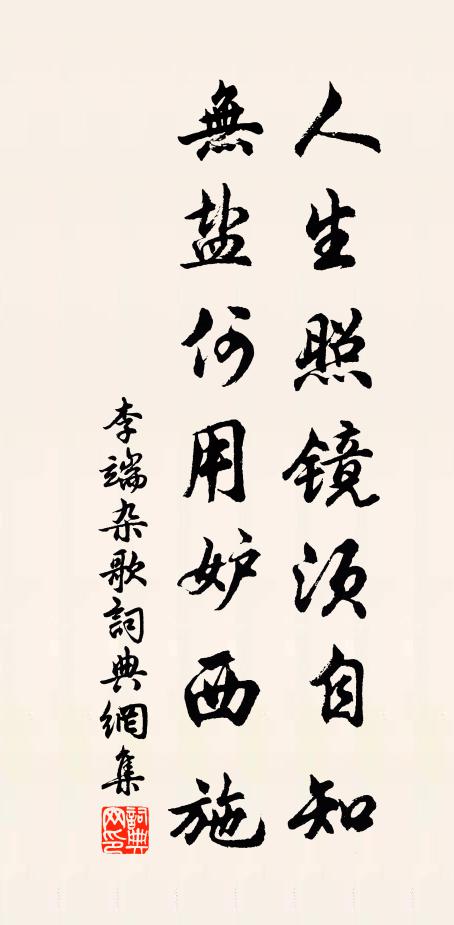 人生照镜须自知
無盐何用妒西施
李端杂歌詞典網集
詞典网印